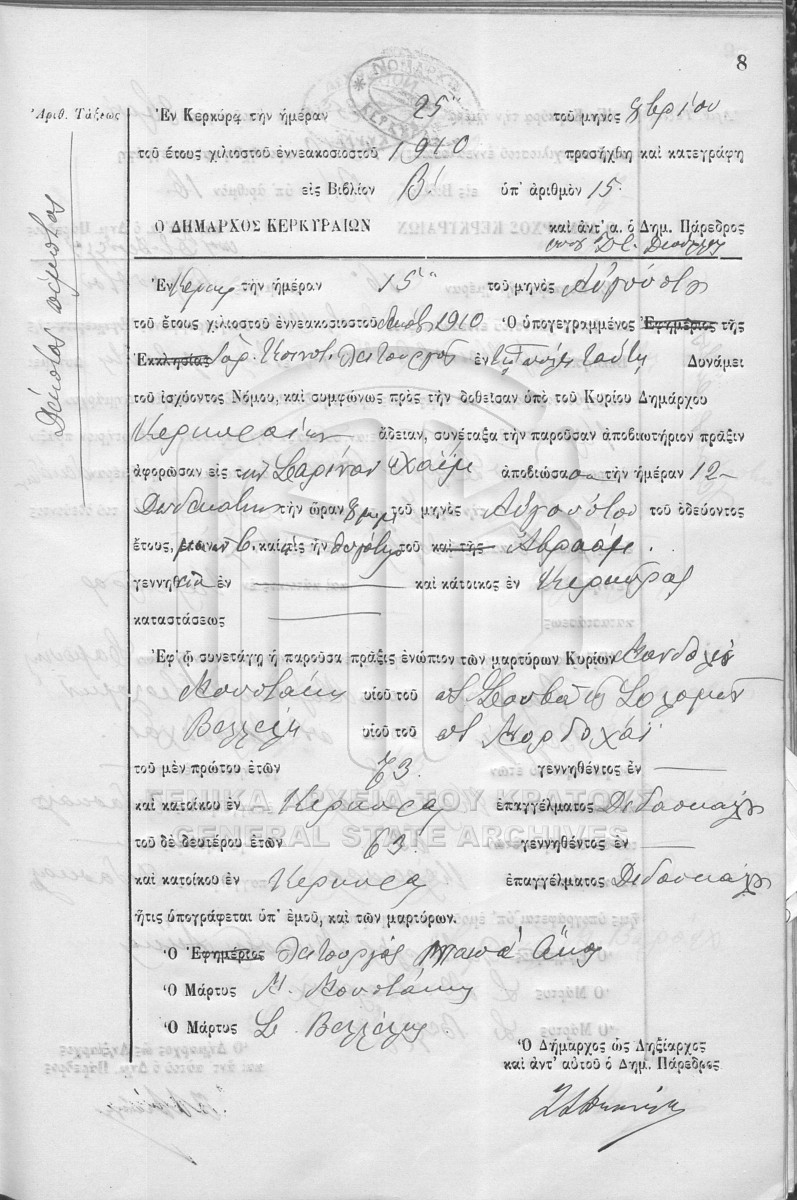 8
Ἀριθ. Τάξεως
Ἐν Κερκύρᾳ τὴν ἡμέραν 25 τοῦ μηνὸς
τοῦ ἔτους χιλιοστοῦ ἐννεακοσιοστοῦ 1910 προσήχθη καὶ κατεγράφη
εἰς Βιβλίον Β' ὑπ' ἀριθμὸν 15.
Ο ΔΗΜΑΡΧΟΣ ΚΕΡΚΥΡΑΙΩΝ καὶ ἀντ' α. ὁ Δημ. Πάρεδρος
Δέκατος πέμπτος
Ἐν Κερκ τὴν ἡμέραν 15 τοῦ μηνὸς Αὐγούστου
τοῦ ἔτους χιλιοστοῦ ἐννεακοσιοστοῦ 1910 Ὁ ὑπογεγραμμένος Ἐφημέριος τῆς
Ἐκκλησίας Λειτουργὸς ἐν τῇ πόλει ταύτῃ Δυνάμει
τοῦ ἰσχύοντος Νόμου, καὶ συμφώνως πρὸς τὴν δοθεῖσαν ὑπὸ τοῦ Κυρίου Δημάρχου
Κερκυραίων ἄδειαν, συνέταξα τὴν παροῦσαν ἀποβιωτήριον πρᾶξιν
ἀφορῶσαν εἰς τὴν Χαΐμ ἀποβιώσασα τὴν ἡμέραν 12
Δωδεκάτην τὴν ὥραν τοῦ μηνὸς Αὐγούστου τοῦ ὁδεύοντος
ἔτους, καὶ ἥτις ἦν θυγάτηρ τοῦ καὶ τῆς Ἀβραάμ.
γεννηθεῖσα ἐν — καὶ κάτοικος ἐν Κερκύρας
καταστάσεως —
Ἐφ' ᾧ συνετάγη ἡ παροῦσα πρᾶξις ἐνώπιον τῶν μαρτύρων Κυρίων
Μουστάκη υἱοῦ τοῦ Σολομὼν
Βελλέλη υἱοῦ τοῦ Μορδοχάϊ
τοῦ μὲν πρώτου ἐτῶν 63. γεννηθέντος ἐν —
καὶ κατοίκου ἐν Κερκύρᾳ ἐπαγγέλματος Διδάσκαλος
τοῦ δὲ δευτέρου ἐτῶν 63. γεννηθέντος ἐν —
καὶ κατοίκου ἐν Κερκύρᾳ ἐπαγγέλματος Διδάσκαλος
ἥτις ὑπογράφεται ὑπ' ἐμοῦ, καὶ τῶν μαρτύρων.
Ὁ Ἐφημέριος Λειτουργὸς
Ὁ Μάρτυς Μ. Μουστάκης
Ὁ Μάρτυς Σ. Βελλέλης
Ὁ Δήμαρχος ὡς Ληξίαρχος
καὶ ἀντ' αὐτοῦ ὁ Δημ. Πάρεδρος
ΓΕΝΙΚΑ ΑΡΧΕΙΑ ΤΟΥ ΚΡΑΤΟΥΣ
GENERAL STATE ARCHIVES